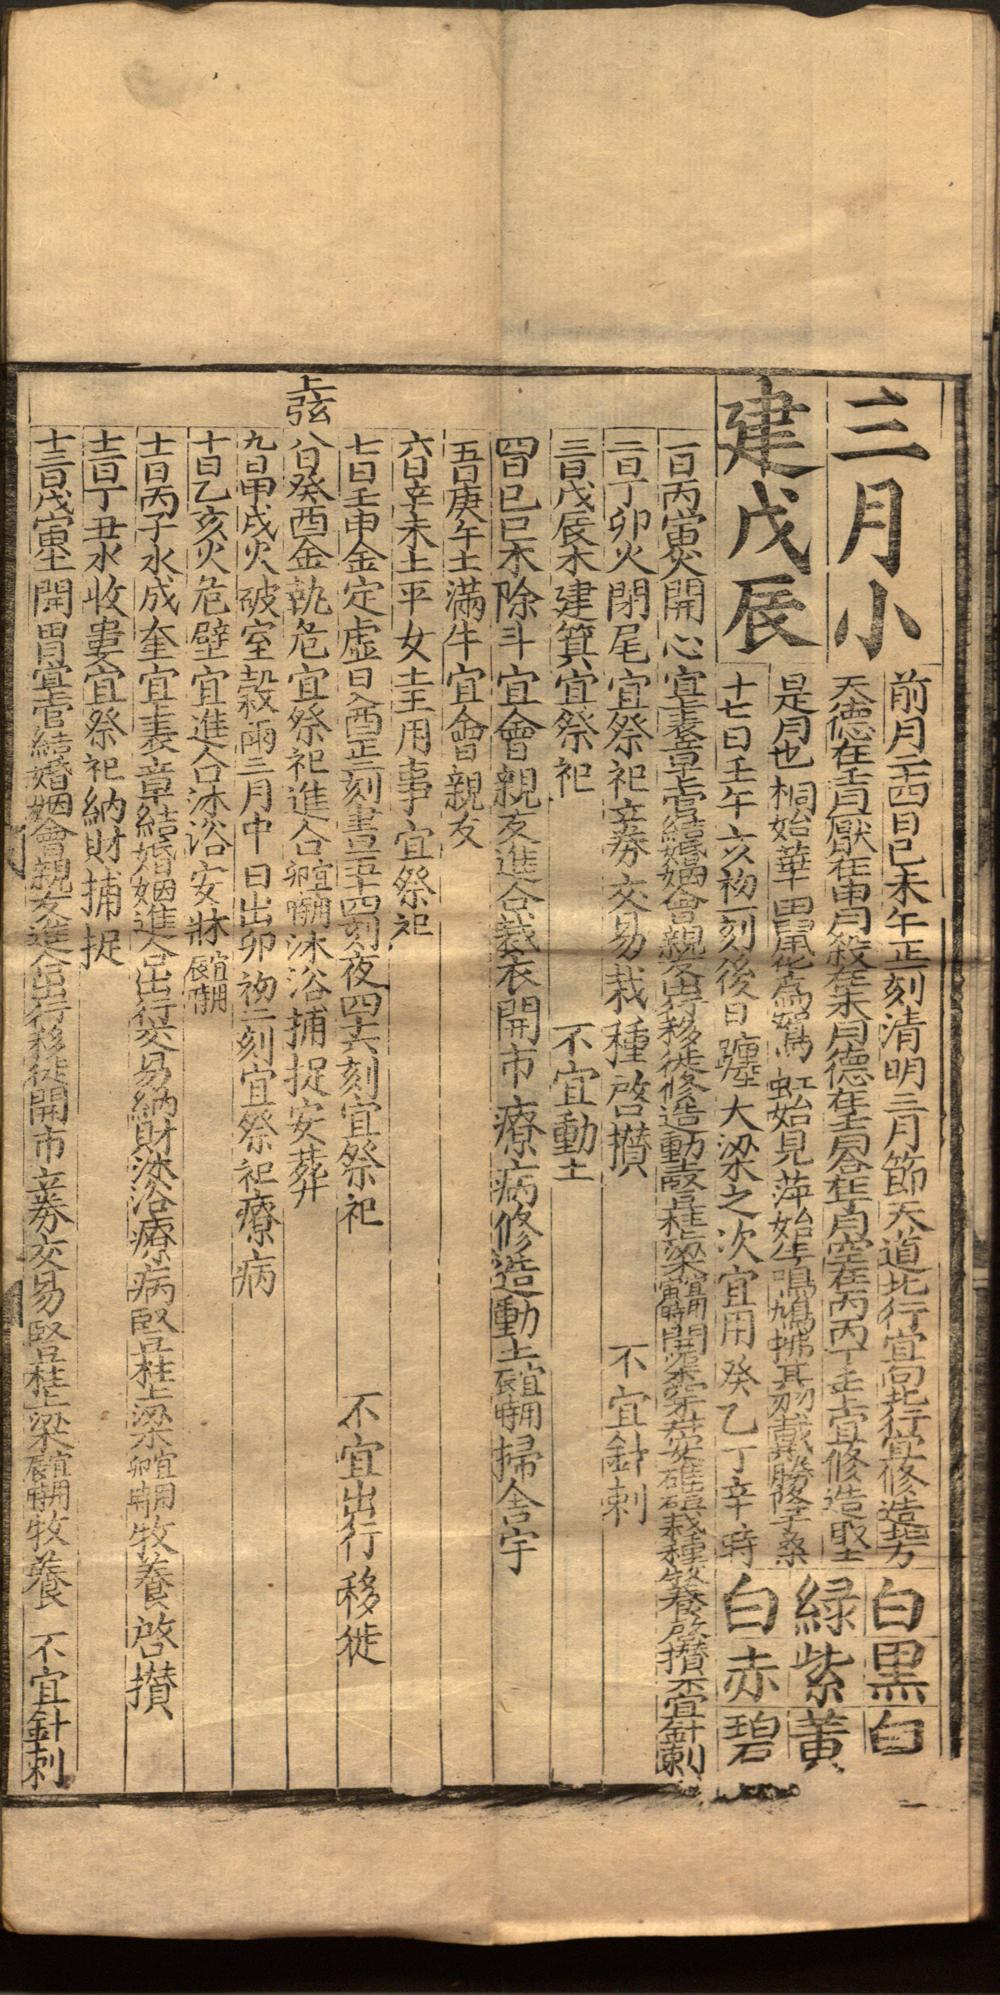 三月小
建戊辰
前月二十四日己未午正一刻清明三月節天道北行宜向北行宜修造北方
天德在壬月厭在申月殺在未月德在壬月合在丁月空在丙丙丁壬上宜修造取土
是月也桐始華田鼠化為鴽虹始見萍始生鳴鳩拂其羽戴勝降于桑
十七日壬午亥初一刻後日躔大梁之次宜用癸乙丁辛時
白黑白
緑紫黃
白赤碧
一日丙寅火開心宜上表章上官結婚姻會親友出行移徙修造動土竪柱上梁宜用寅時開渠穿井安碓磑栽種牧養啓攢不宜針刺
二日丁卯火閉尾宜祭祀立券交易栽種啓攢 不宜針刺
三日戊辰木建箕宜祭祀 不宜動土
四日己巳木除斗宜會親友進人口裁衣開市療病修造動土宜用辰時掃舍宇
五日庚午土滿牛宜會親友
六日辛未土平女土王用事宜祭祀
七日壬申金定虛日入酉正三刻晝五十四刻夜四十六刻宜祭祀 不宜出行移徙
上弦
八日癸酉金執危宜祭祀進人口宜用卯時沐浴捕捉安葬
九日甲戌火破室穀雨三月中日出卯初二刻宜祭祀療病
十日乙亥火危壁宜進人口沐浴安牀宜用辰時
十一日丙子水成奎宜上表章結婚姻進人口出行交易納財沐浴療病竪柱上梁宜用卯時牧養啓攢
十二日丁丑水收婁宜祭祀納財捕捉
十三日戊寅土開胃宜上官結婚姻會親友進人口出行移徙開市立券交易竪柱上梁宜用辰時牧養 不宜針刺